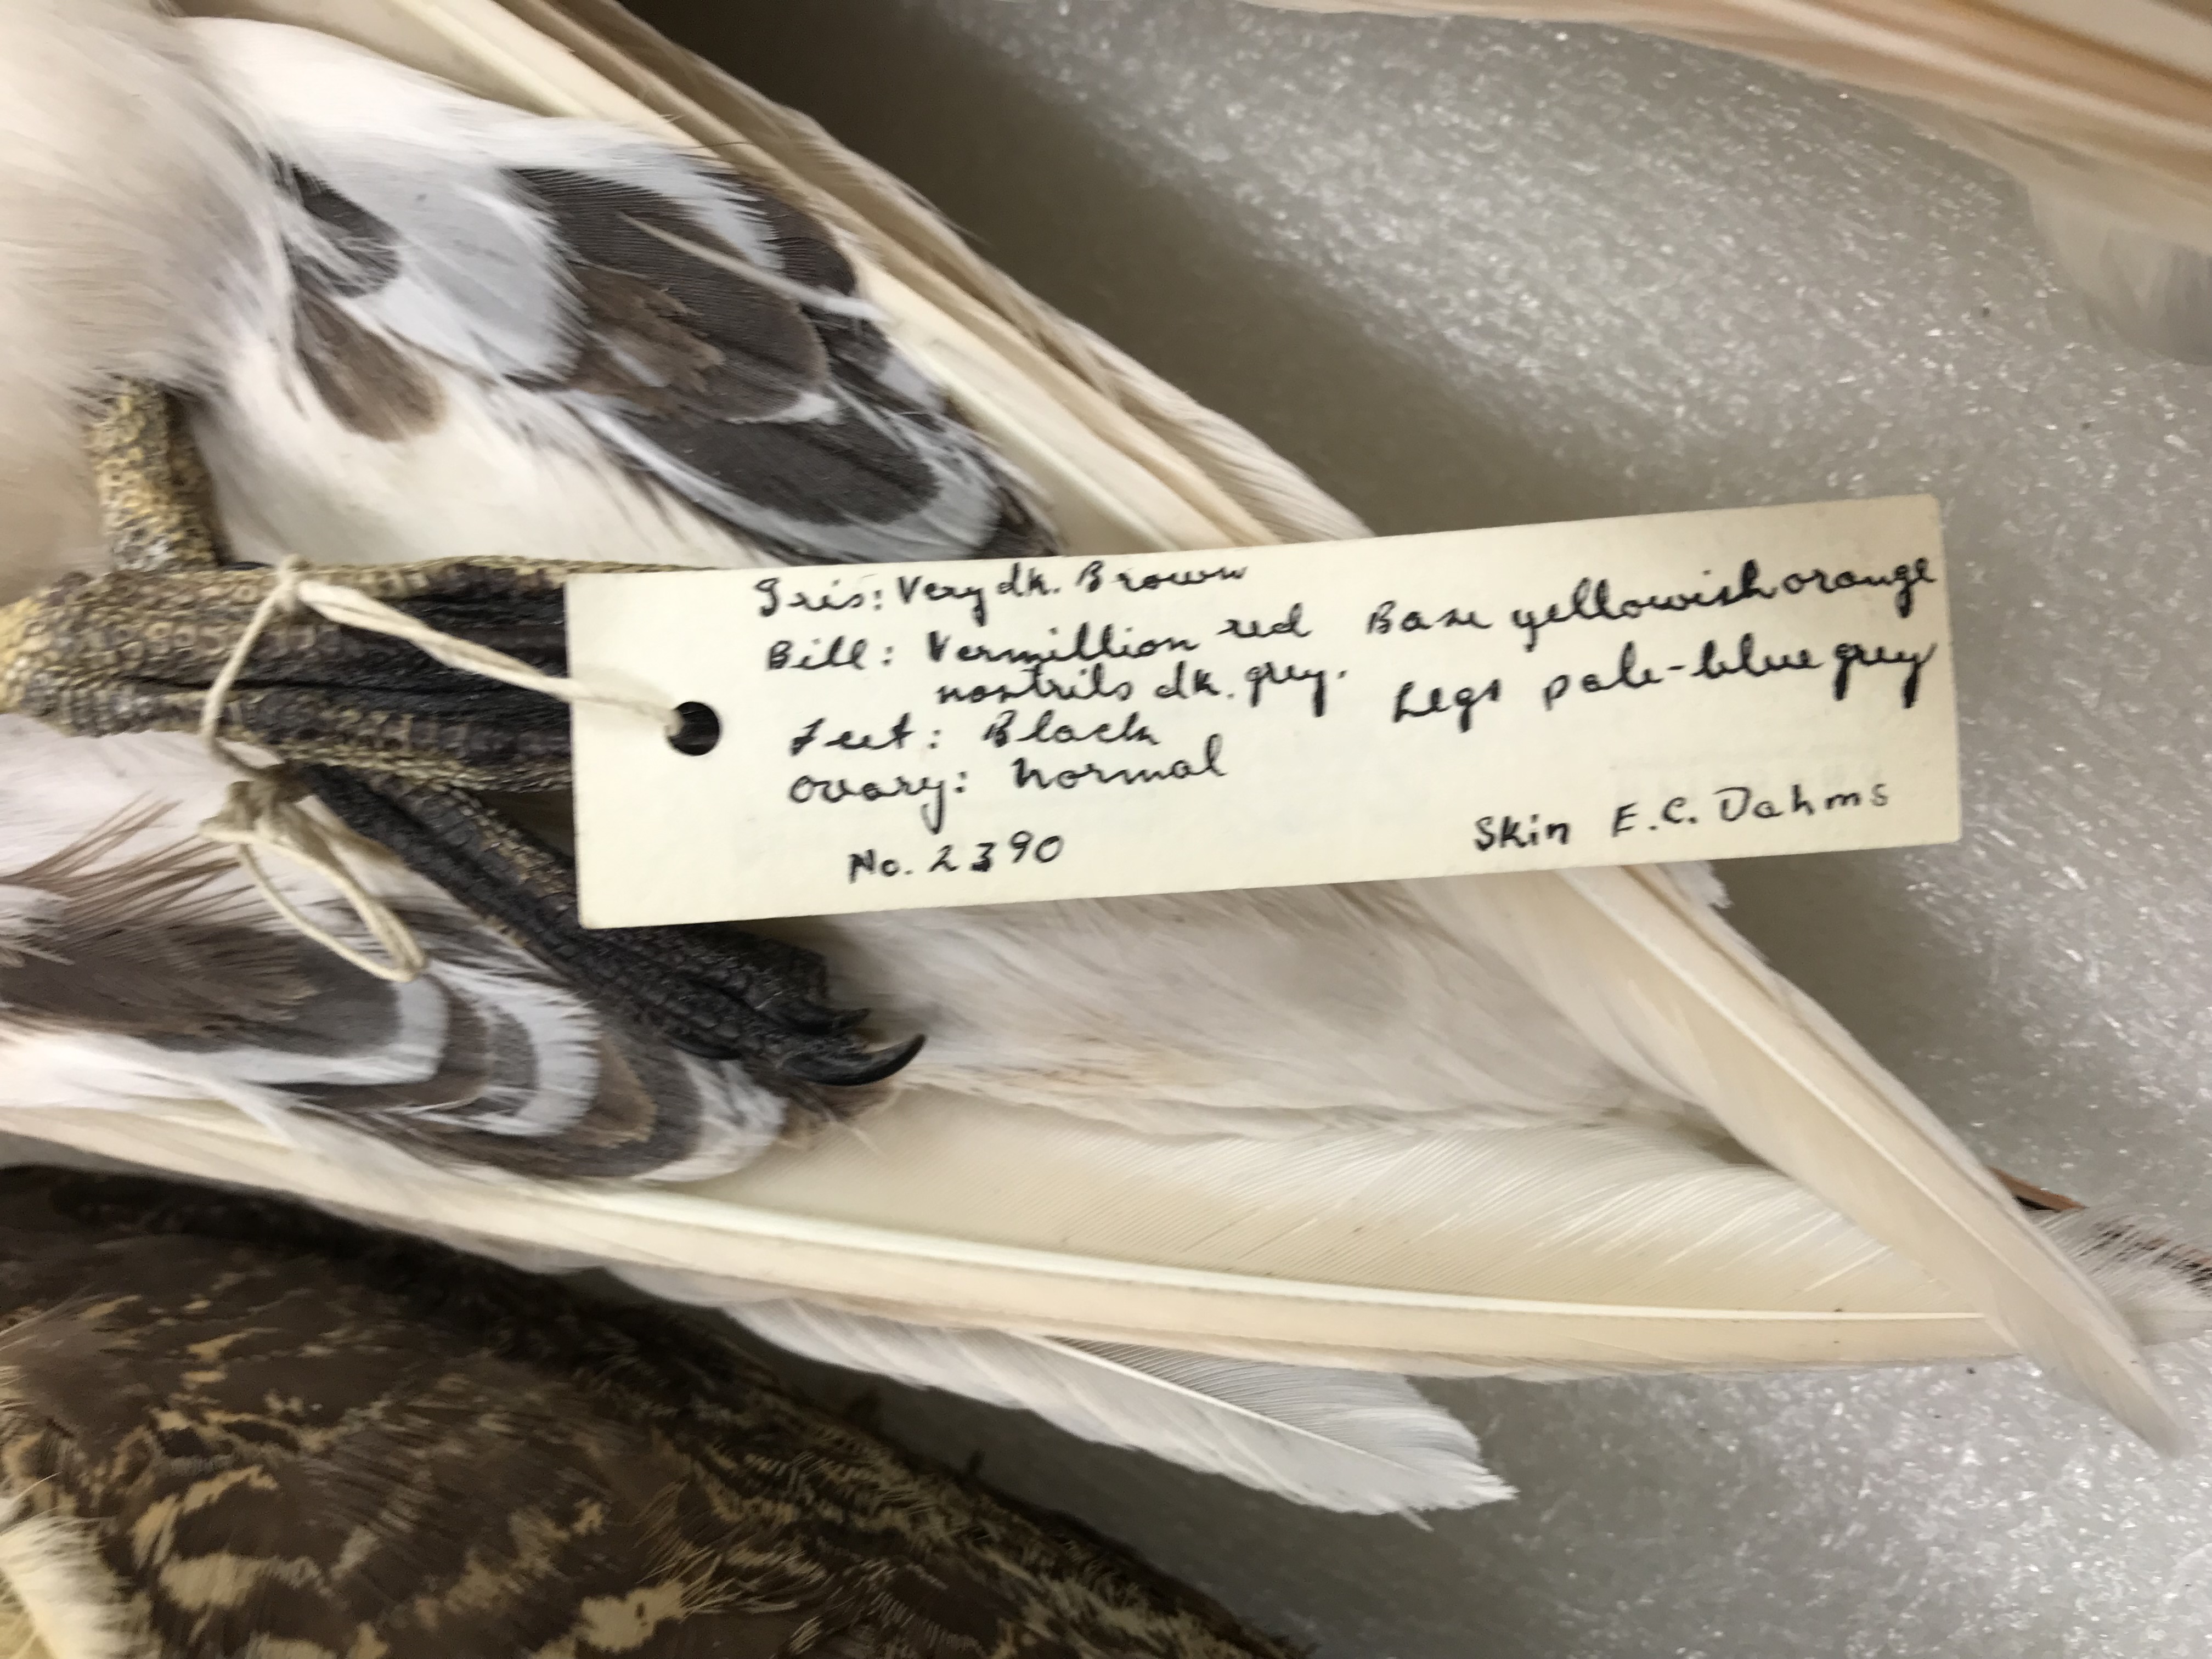 Iris: Very dk. Brown
Bill: Vermillion red Base yellowish orange
nostrils dk. grey.
Feet: Black Legs pale-blue grey
Ovary: Normal
No. 2390 Skin E.C. Dahms